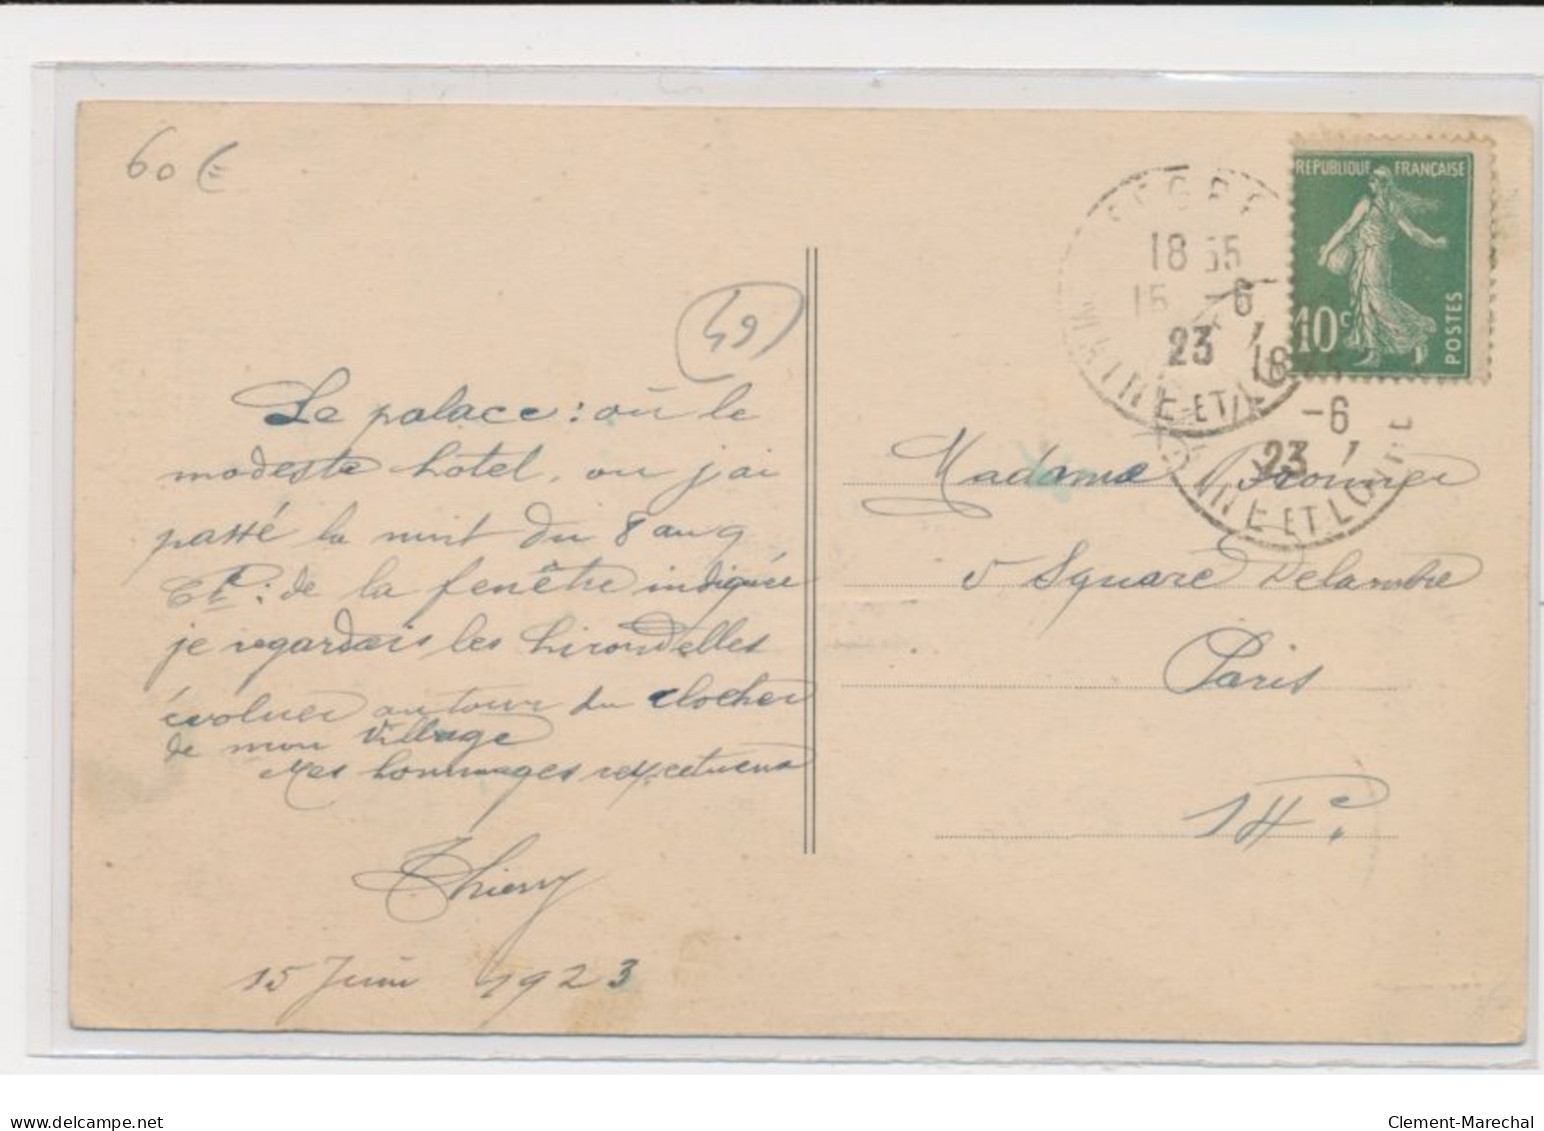 60 €
49
SEGRÉ
18 55
15 -6
23
MAINE-ET-L
18 55
-6
23
MAINE ET LOIRE
REPUBLIQUE FRANÇAISE
10c
POSTES
Le palace : où le
modeste hotel, ou j'ai
passé la nuit du 8 au 9
Ct : de la fenêtre indiquée
je regardais les hirondelles
évoluer autour du clocher
de mon village
Mes hommages respectueux
Thierry
15 Juin 1923
Madame
5 Square Delambre
Paris
14e
www.delcampe.net
Clement-Marechal